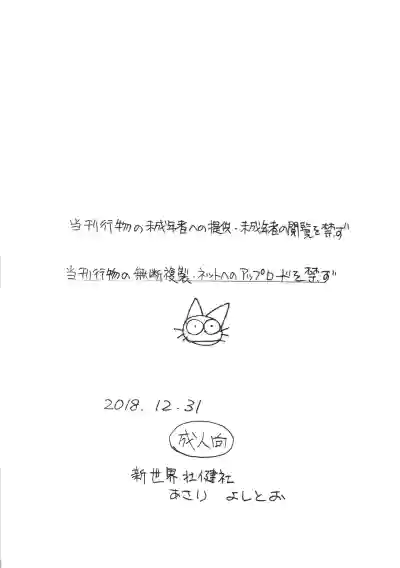 当刊行物の未成年者への提供・未成年者の閲覧を禁ず
当刊行物の無断複製・ネットへのアップロードを禁ず
2018.12.31
成人向
新世界壮健社
あさり よしとお